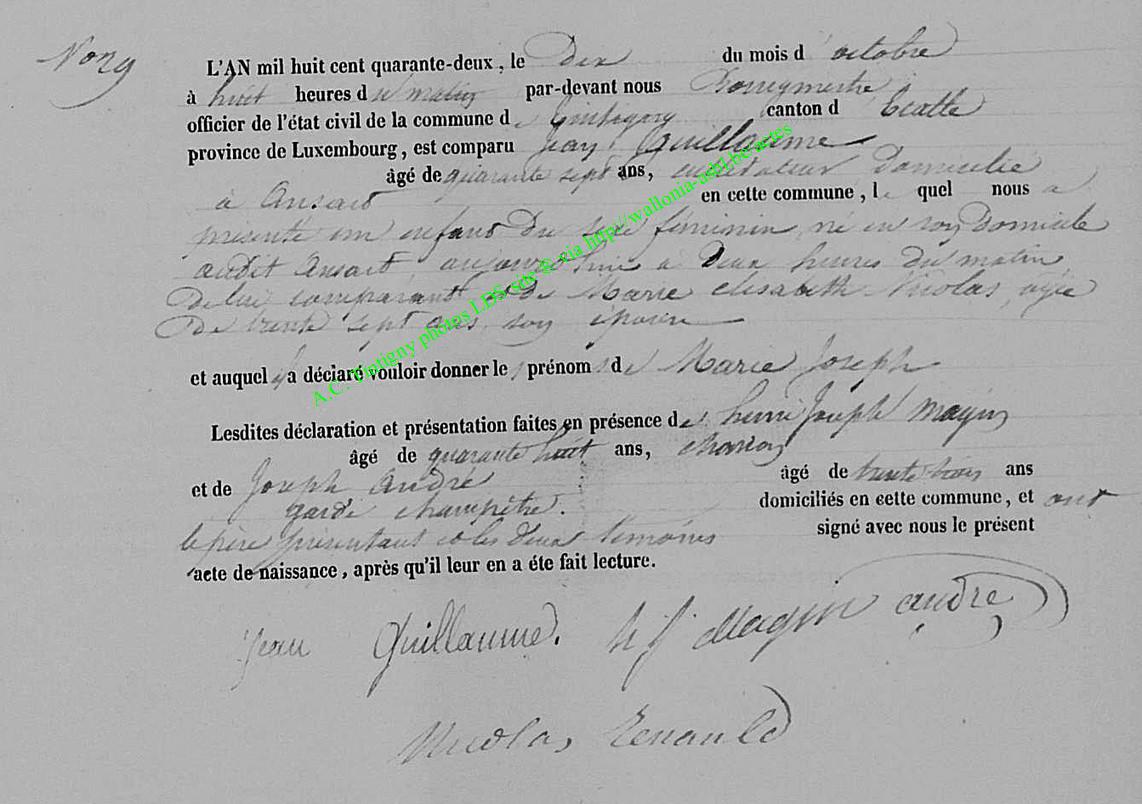 N° 29
L'AN mil huit cent quarante-deux, le Dix du mois d'octobre
à huit heures du matin par-devant nous Bourgmestre
officier de l'état civil de la commune de Tintigny canton d'Etalle
province de Luxembourg, est comparu Jean Guillaume
âgé de quarante sept ans, cultivateur Domicilié
à Ansart en cette commune, lequel nous a
présenté un enfant du sexe féminin, né en son Domicile
audit Ansart, à Deux heures du matin
De lui comparant et de Marie elisabeth Nicolas, agée
De trente sept ans son épouse
et auquel il a déclaré vouloir donner les prénoms de Marie Joseph
Lesdites déclaration et présentation faites en présence de henri Joseph Magin
âgé de quarante huit ans,
et de Joseph André âgé de trente trois ans
garde champêtre. domiciliés en cette commune, et ont
le père présentant et les deux témoins signé avec nous le présent
acte de naissance, après qu'il leur en a éte fait lecture.
Jean Guillaume. h j Magin andre
Nicolas Renauld
A.C. Tintigny photos LDS site & via http://wallonia-asbl.be/actes